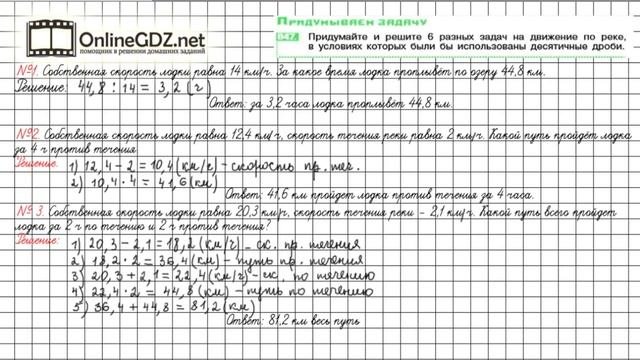 OnlineGDZ.net
помощник в решении домашних заданий
ПРИДУМЫВАЕМ ЗАДАЧУ
847. Придумайте и решите 6 разных задач на движение по реке,
в условиях которых были бы использованы десятичные дроби.
№1. Собственная скорость лодки равна 14 км/ч. За какое время лодка проплывёт по озеру 44,8 км.
Решение: 44,8 : 14 = 3,2 (ч)
Ответ: за 3,2 часа лодка проплывёт 44,8 км.
№2. Собственная скорость лодки равна 12,4 км/ч, скорость течения реки равна 2 км/ч. Какой путь пройдёт лодка
за 4 ч против течения
Решение: 1) 12,4 – 2 = 10,4 (км/ч) – скорость пр. теч.
2) 10,4 · 4 = 41,6 (км)
Ответ: 41,6 км пройдет лодка против течения за 4 часа.
№ 3. Собственная скорость лодки равна 20,3 км/ч, скорость течения реки – 2,1 км/ч. Какой путь всего пройдет
лодка за 2 ч по течению и 2 ч против течения?
Решение: 1) 20,3 – 2,1 = 18,2 (км/ч) – ск. пр. течения
2) 18,2 · 2 = 36,4 (км) – путь пр. течения
3) 20,3 + 2,1 = 22,4 (км/ч) – ск. по течению
4) 22,4 · 2 = 44,8 (км) – путь по течению
5) 36,4 + 44,8 = 81,2 (км)
Ответ: 81,2 км весь путь